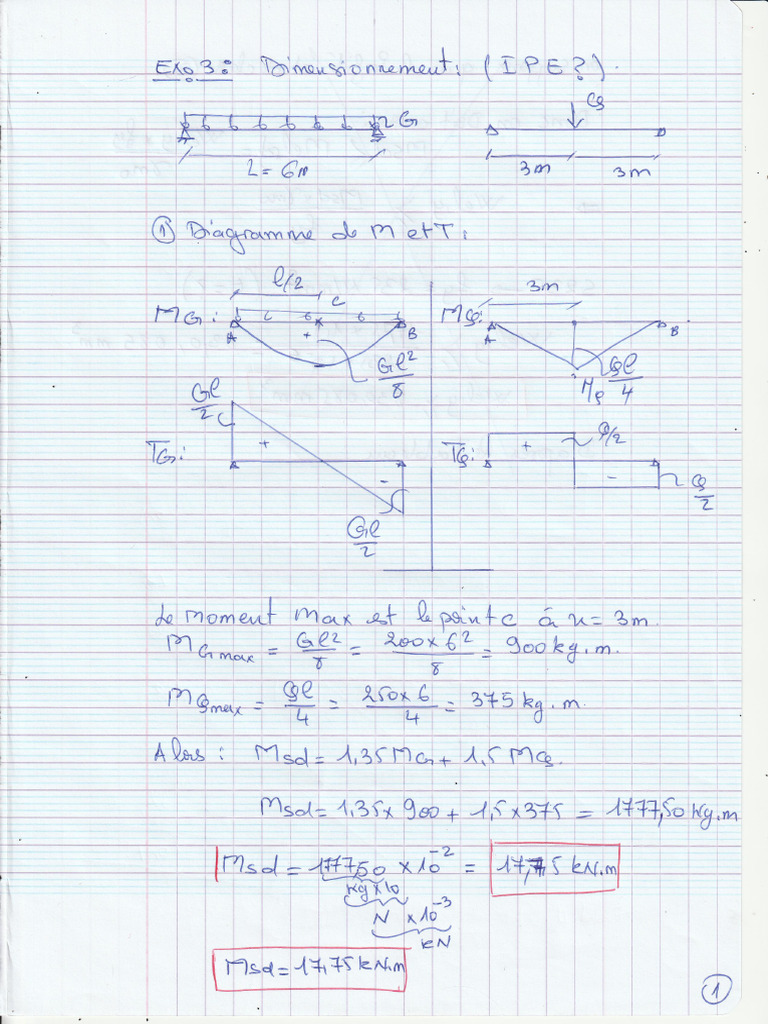 Exo 3: Dimensionnement: (IPE?).
G
Q
L = 6m
3m 3m
① Diagramme de M et T:
l/2
C
3m
MG: A + B
MQ: A B
Gl²/8
MQ Ql/4
Gl/2
TG: + A -
TQ: + Q/2
- Q/2
Gl/2
Le moment max est le point C à x = 3m.
MGmax = Gl²/8 = 200×6²/8 = 900 kg.m.
MQmax = Ql/4 = 250×6/4 = 375 kg.m.
Alors: Msd = 1,35MG + 1,5 MQ.
Msd = 1,35×900 + 1,5×375 = 1777,50 kg.m
Msd = 1777,50 × 10⁻² = 17,75 kN.m
kg×10
N × 10⁻³
kN
Msd = 17,75 kN.m
1